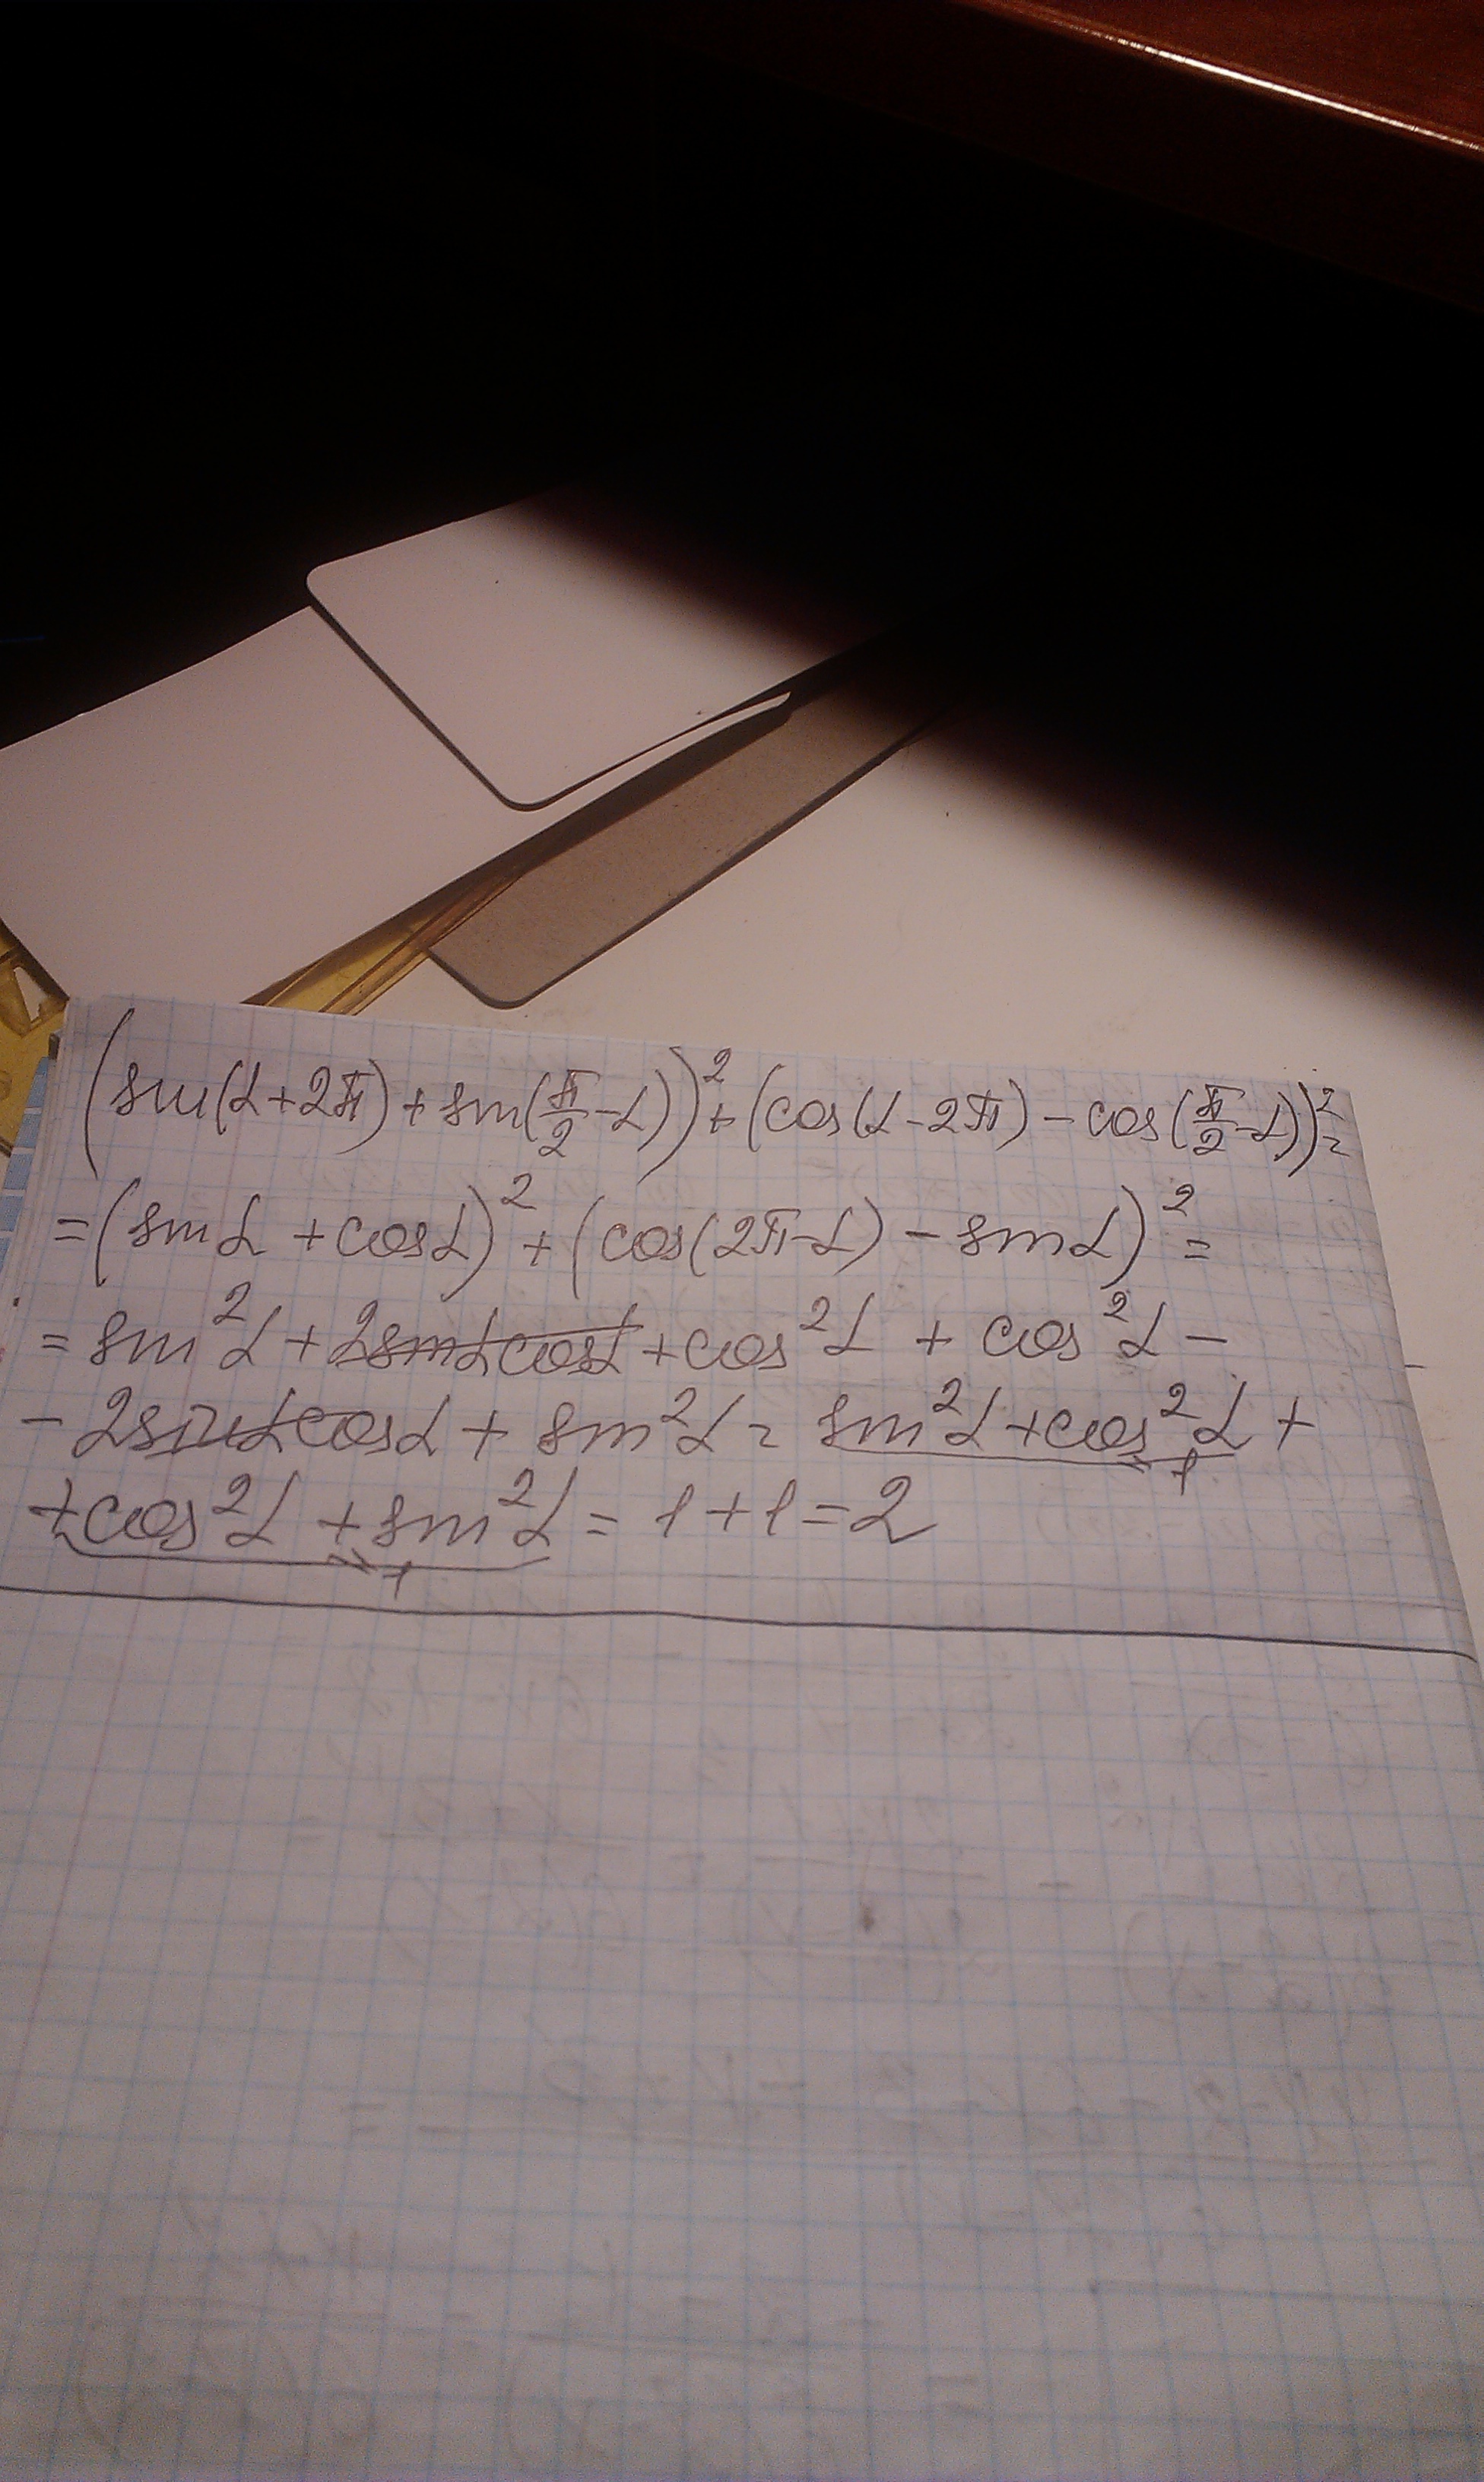 (sin(α+2π)+sin(π/2-α))²+(cos(α-2π)-cos(π/2-α))²=
=(sinα+cosα)²+(cos(2π-α)-sinα)²=
=sin²α+2sinαcosα+cos²α+cos²α-
-2sinαcosα+sin²α=sin²α+cos²α+
=1
+cos²α+sin²α=1+1=2
=1